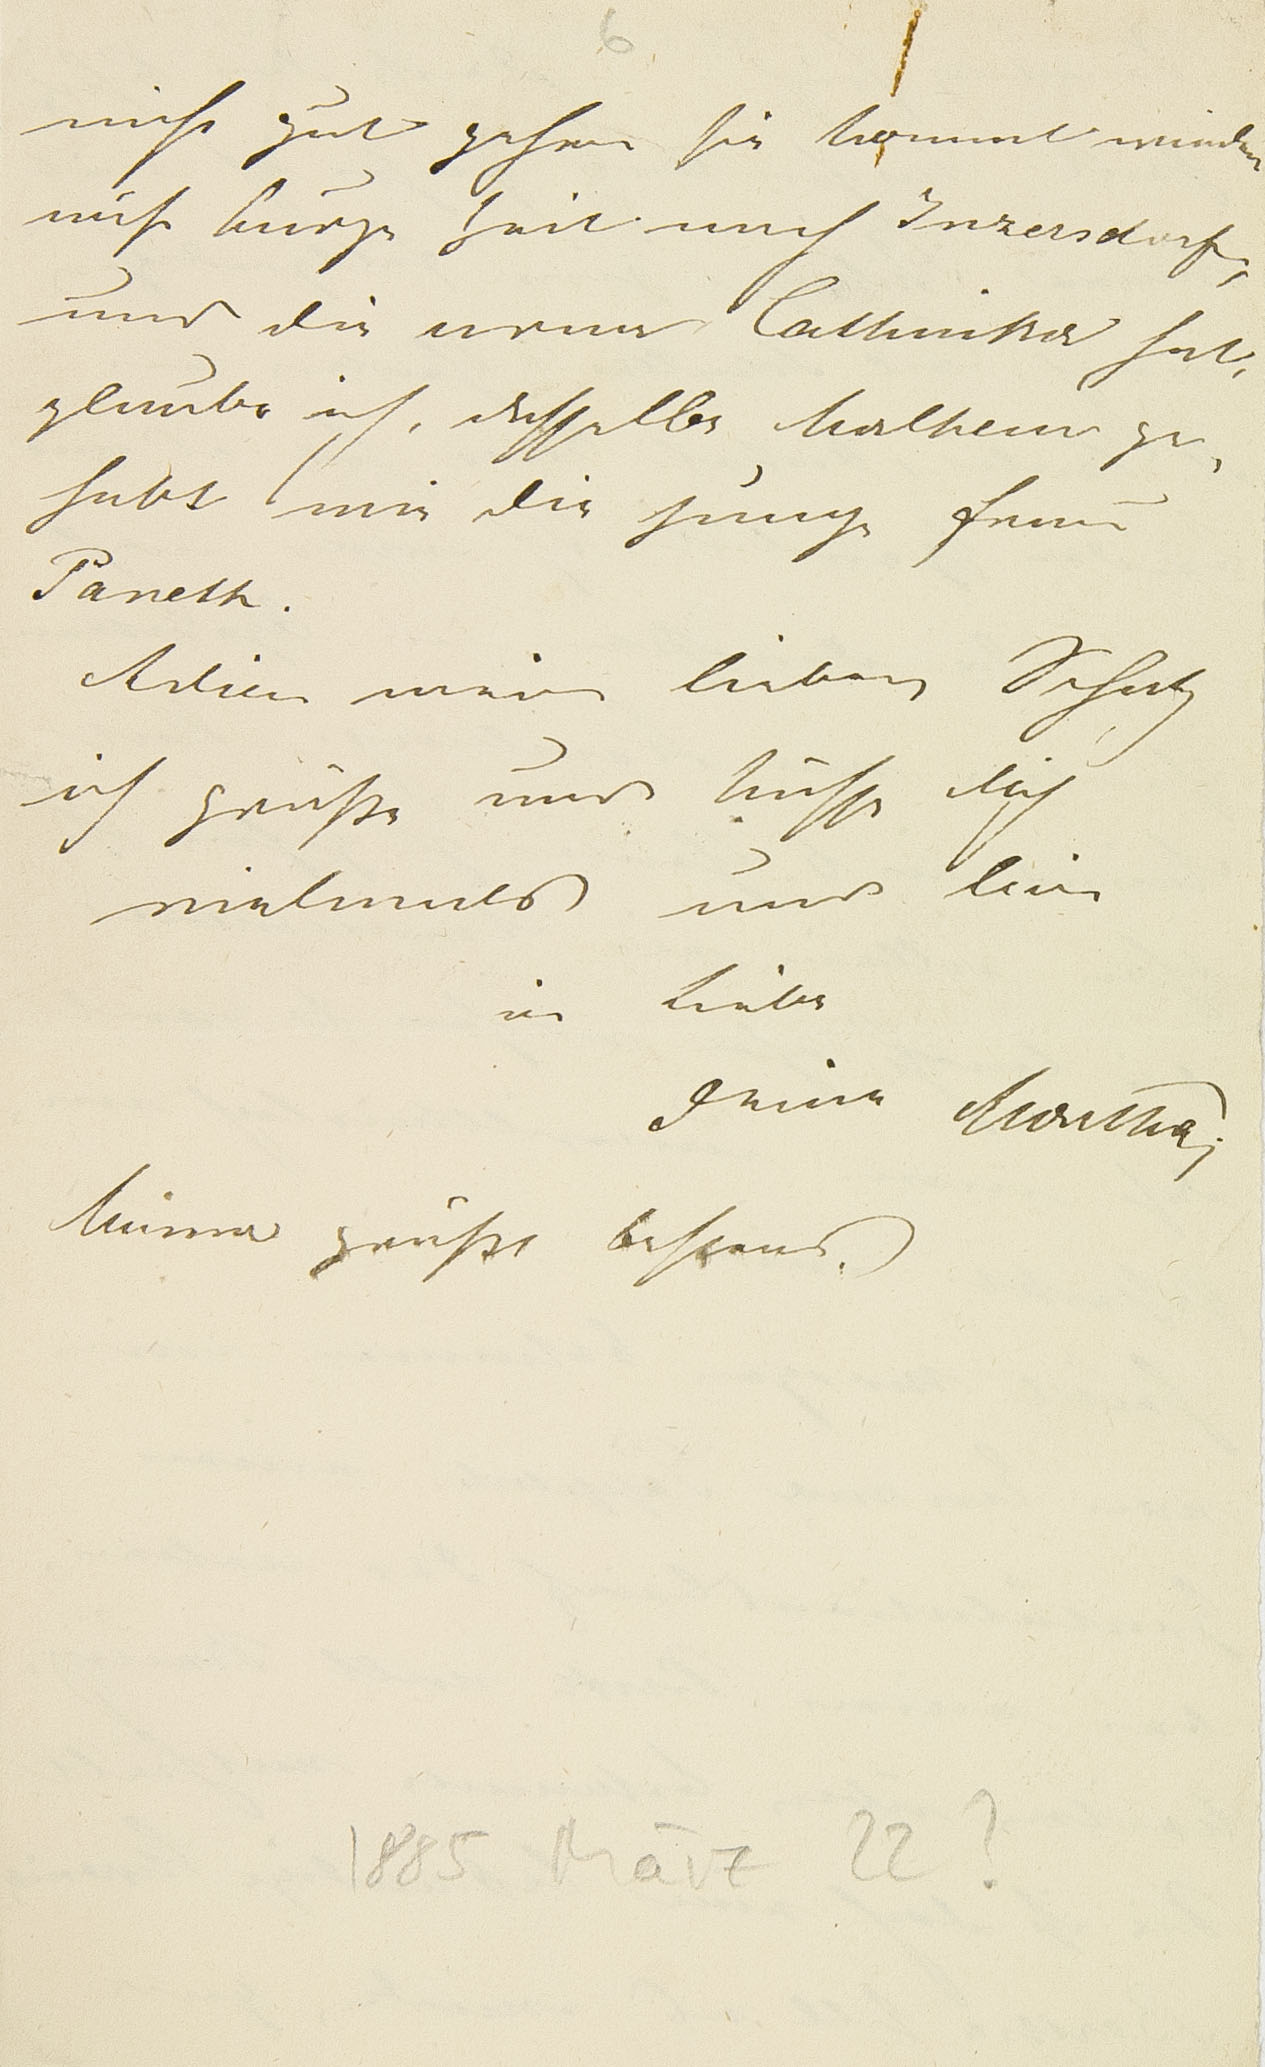 6
nicht gut gehen sie kommt wieder
auf kurze Zeit nach Inzersdorf,
und die arme hat,
glaube ich, dasselbe Malheur ge-
habt wie die junge Frau
Paneth.
Adieu mein lieber Schatz
ich grüße und küsse dich
vielmals und bin
in Liebe
Deine Martha,
Minna grüßt bestens.
1885 März 22?